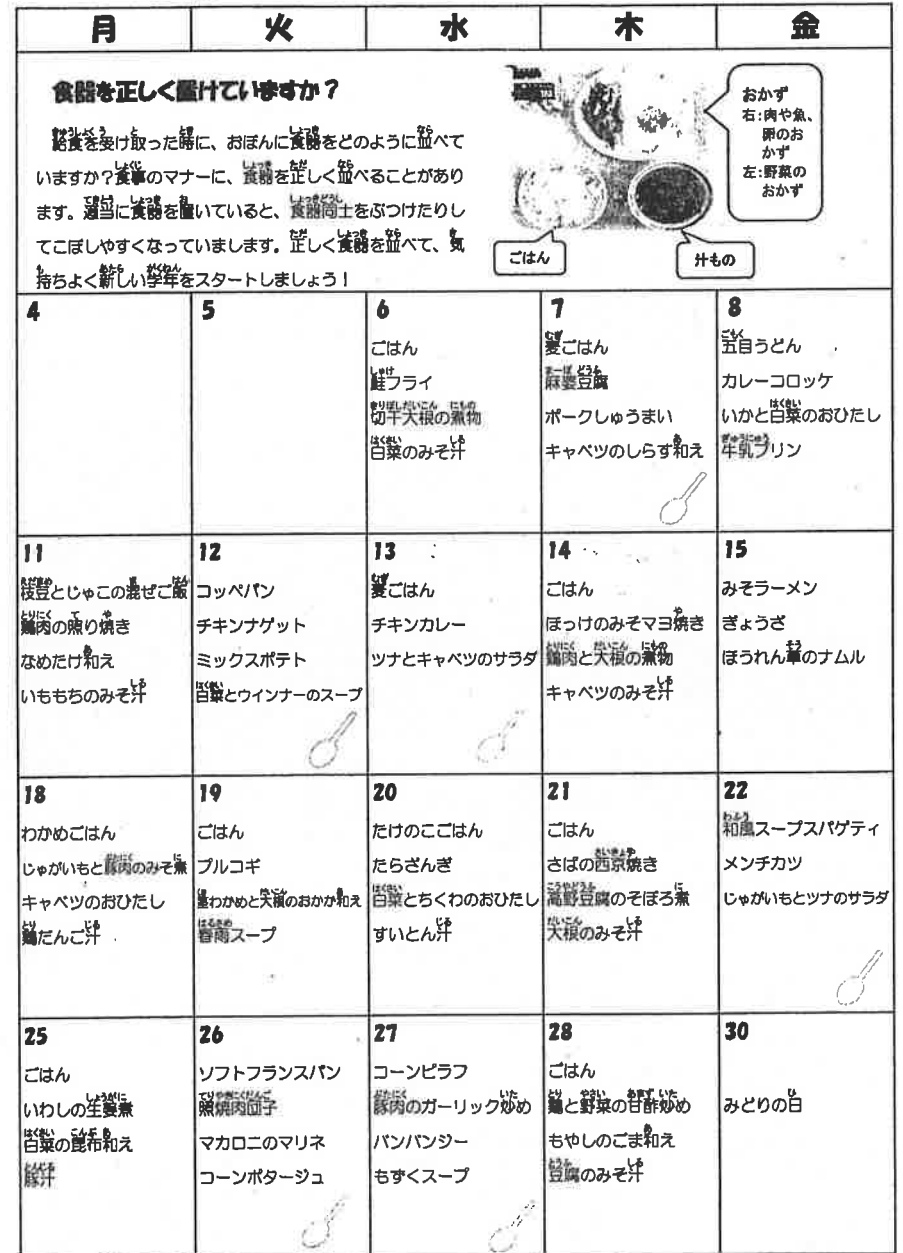 月 火 水 木 金
食器を正しく置けていますか？
給食を受け取った時に、おぼんに食器をどのように並べて
いますか？食事のマナーに、食器を正しく並べることがあり
ます。適当に食器を置いていると、食器同士をぶつけたりし
てこぼしやすくなっていまします。正しく食器を並べて、気
持ちよく新しい学年をスタートしましょう！
おかず
右:肉や魚、
卵のお
かず
左:野菜の
おかず
ごはん
汁もの
4
5
6
ごはん
鮭フライ
切干大根の煮物
白菜のみそ汁
7
麦ごはん
麻婆豆腐
ポークしゅうまい
キャベツのしらす和え
8
五目うどん
カレーコロッケ
いかと白菜のおひたし
牛乳プリン
11
枝豆とじゃこの混ぜご飯
鶏肉の照り焼き
なめたけ和え
いももちのみそ汁
12
コッペパン
チキンナゲット
ミックスポテト
白菜とウインナーのスープ
13
麦ごはん
チキンカレー
ツナとキャベツのサラダ
14
ごはん
ほっけのみそマヨ焼き
鶏肉と大根の煮物
キャベツのみそ汁
15
みそラーメン
ぎょうざ
ほうれん草のナムル
18
わかめごはん
じゃがいもと豚肉のみそ煮
キャベツのおひたし
鶏だんご汁
19
ごはん
プルコギ
茎わかめと大根のおかか和え
春雨スープ
20
たけのこごはん
たらざんぎ
白菜とちくわのおひたし
すいとん汁
21
ごはん
さばの西京焼き
高野豆腐のそぼろ煮
大根のみそ汁
22
和風スープスパゲティ
メンチカツ
じゃがいもとツナのサラダ
25
ごはん
いわしの生姜煮
白菜の昆布和え
豚汁
26
ソフトフランスパン
照焼肉団子
マカロニのマリネ
コーンポタージュ
27
コーンピラフ
豚肉のガーリック炒め
バンバンジー
もずくスープ
28
ごはん
鶏と野菜の甘酢炒め
もやしのごま和え
豆腐のみそ汁
30
みどりの日